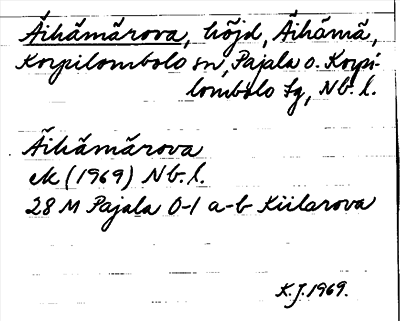 Äihämärova, höjd, Äihämä,
Korpilombolo sn, Pajala o. Korpi-
lombolo tg, Nb. l.
Äihämärova
ek (1969) Nb. l.
28 M Pajala 0-1 a-b Kiilarova
K.J. 1969.